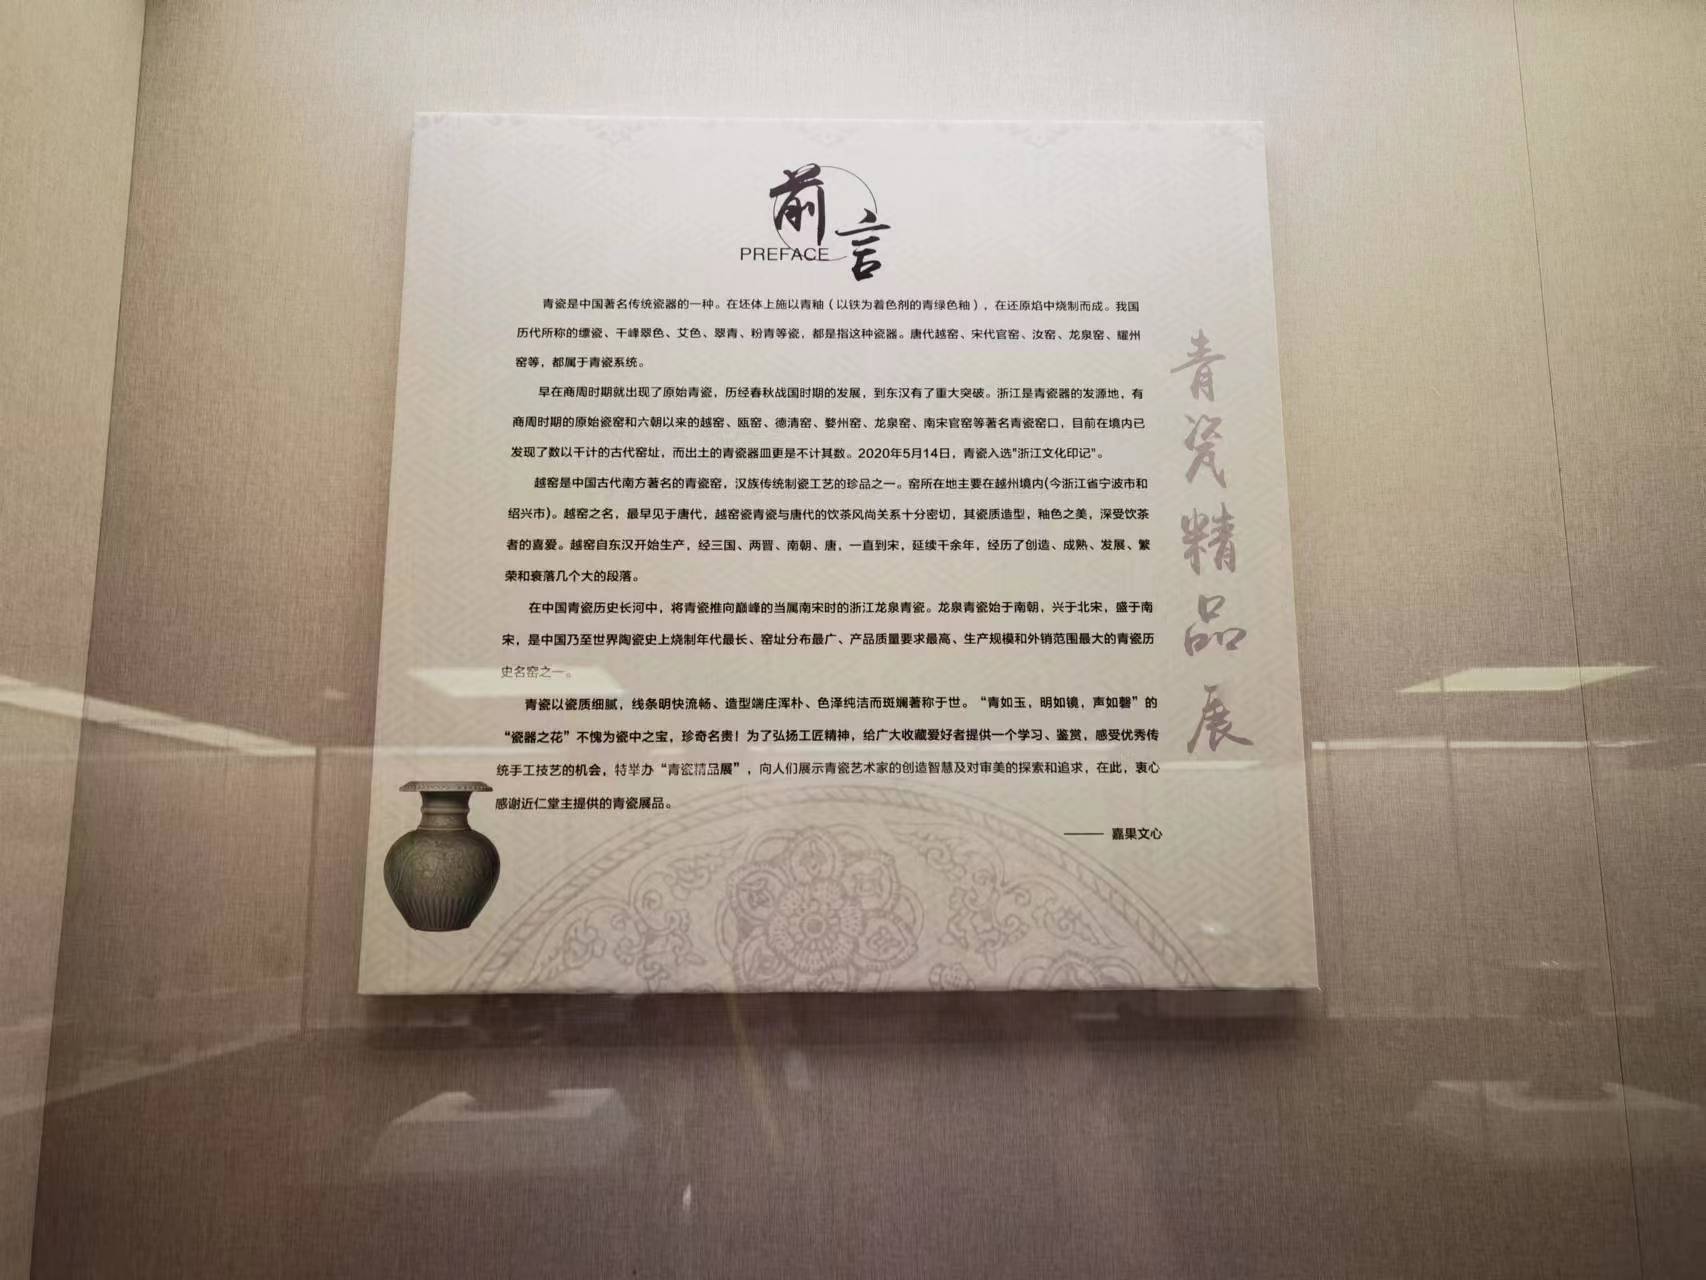 前言
PREFACE
青瓷是中国著名传统瓷器的一种。在坯体上施以青釉（以铁为着色剂的青绿色釉），在还原焰中烧制而成。我国
历代所称的缥瓷、千峰翠色、艾色、翠青、粉青等瓷，都是指这种瓷器。唐代越窑、宋代官窑、汝窑、龙泉窑、耀州
窑等，都属于青瓷系统。
早在商周时期就出现了原始青瓷，历经春秋战国时期的发展，到东汉有了重大突破。浙江是青瓷器的发源地，有
商周时期的原始瓷窑和六朝以来的越窑、瓯窑、德清窑、婺州窑、龙泉窑、南宋官窑等著名青瓷窑口，目前在境内已
发现了数以千计的古代窑址，而出土的青瓷器皿更是不计其数。2020年5月14日，青瓷入选"浙江文化印记"。
越窑是中国古代南方著名的青瓷窑，汉族传统制瓷工艺的珍品之一。窑所在地主要在越州境内(今浙江省宁波市和
绍兴市)。越窑之名，最早见于唐代，越窑瓷青瓷与唐代的饮茶风尚关系十分密切，其瓷质造型，釉色之美，深受饮茶
者的喜爱。越窑自东汉开始生产，经三国、两晋、南朝、唐，一直到宋，延续千余年，经历了创造、成熟、发展、繁
荣和衰落几个大的段落。
在中国青瓷历史长河中，将青瓷推向巅峰的当属南宋时的浙江龙泉青瓷。龙泉青瓷始于南朝，兴于北宋，盛于南
宋，是中国乃至世界陶瓷史上烧制年代最长、窑址分布最广、产品质量要求最高、生产规模和外销范围最大的青瓷历
史名窑之一。
青瓷以瓷质细腻，线条明快流畅、造型端庄浑朴、色泽纯洁而斑斓著称于世。“青如玉，明如镜，声如磬”的
“瓷器之花”不愧为瓷中之宝，珍奇名贵！为了弘扬工匠精神，给广大收藏爱好者提供一个学习、鉴赏，感受优秀传
统手工技艺的机会，特举办“青瓷精品展”，向人们展示青瓷艺术家的创造智慧及对审美的探索和追求，在此，衷心
感谢近仁堂主提供的青瓷展品。
——— 嘉果文心
青瓷精品展